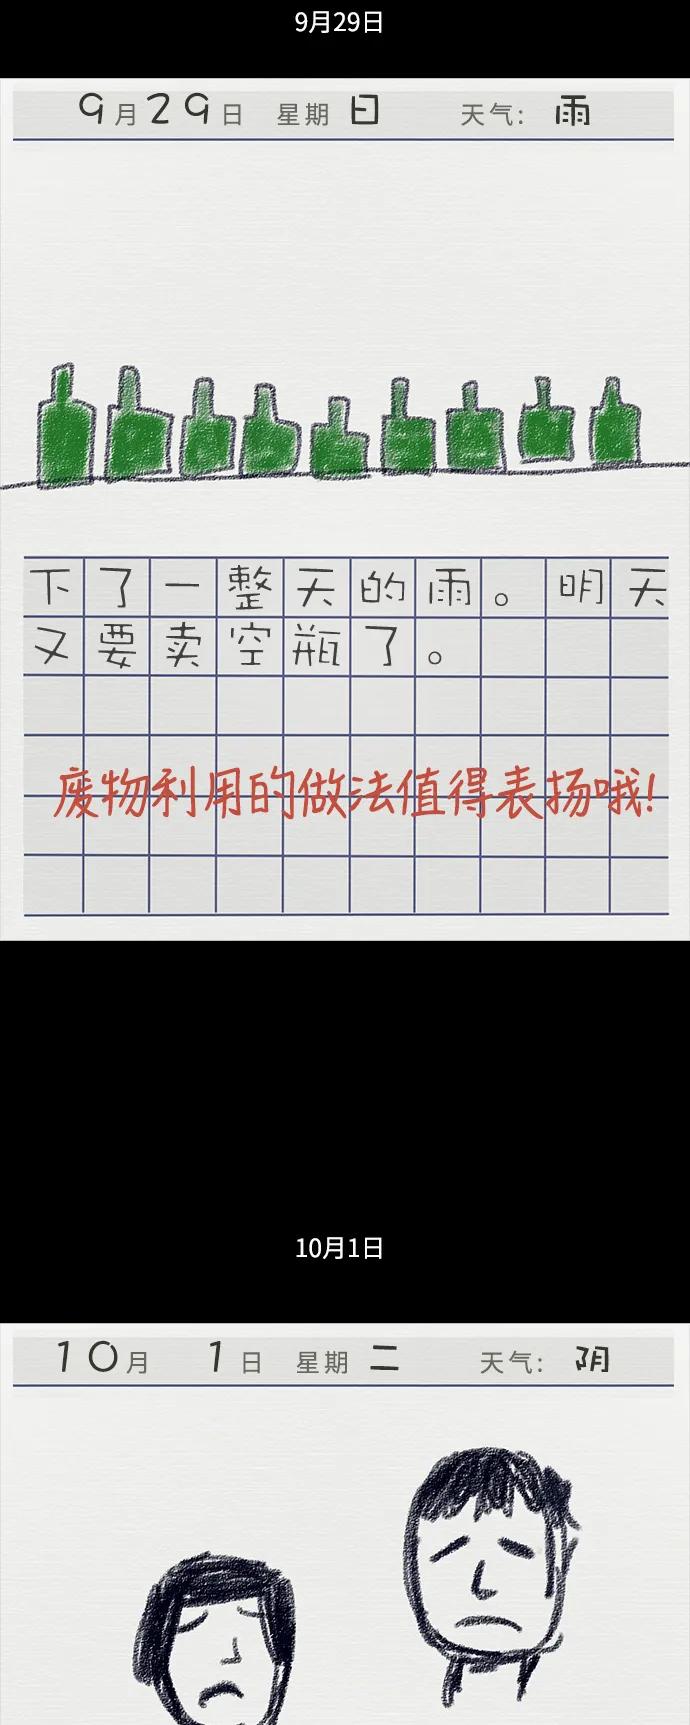 9月29日
9月29日 星期日 天气: 雨
下了一整天的雨。明天
又要卖空瓶了。
废物利用的做法值得表扬哦!
10月1日
10月1日 星期二 天气: 阴